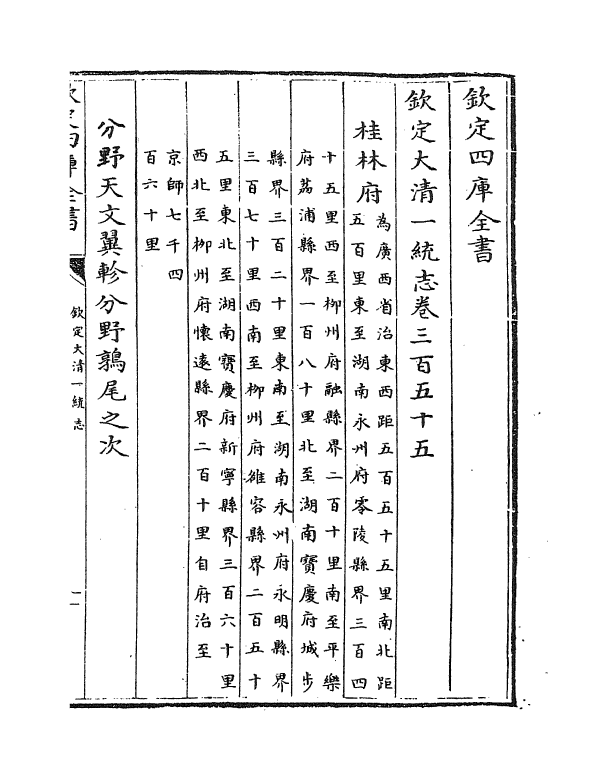 欽定四庫全書
欽定大清一統志卷三百五十五
桂林府
為廣西省治東西距五百五十五里南北距
五百里東至湖南永州府零陵縣界三百四
十五里西至柳州府融縣界二百十里南至平樂
府荔浦縣界一百八十里北至湖南寶慶府城步
縣界三百二十里東南至湖南永州府永明縣界
三百七十里西南至柳州府雒容縣界二百五十
五里東北至湖南寶慶府新寧縣界三百六十里
西北至柳州府懷遠縣界二百十里自府治至
京師七千四
百六十里
分野天文翼軫分野鶉尾之次
欽定四庫全書
欽定大清一統志